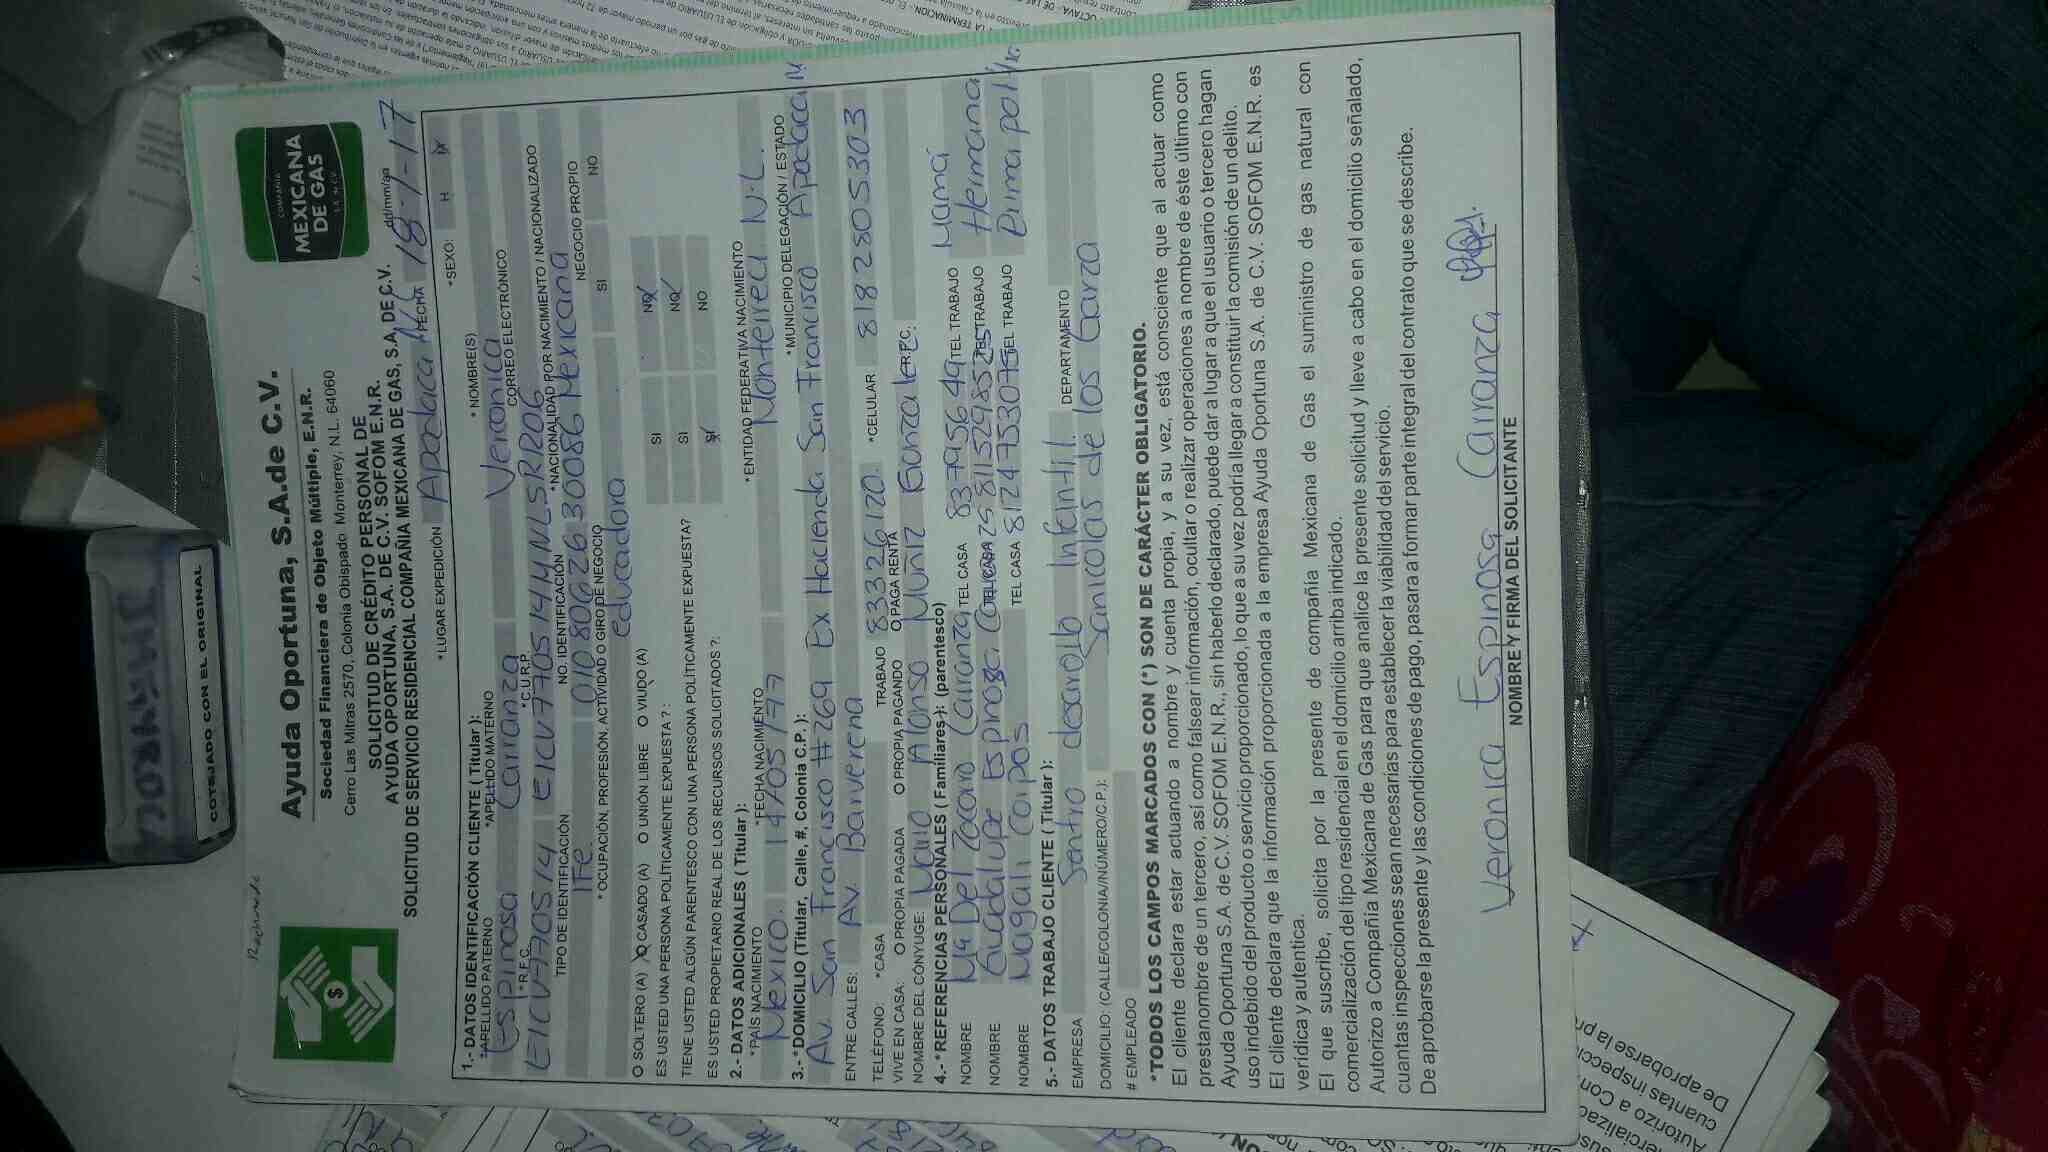 Ayuda Oportuna, S.A.de C.V.
Sociedad Financiera de Objeto Múltiple, E.N.R.
Cerro Las Mitras 2570, Colonia Obispado Monterrey, N.L. 64060
SOLICITUD DE CRÉDITO PERSONAL DE
AYUDA OPORTUNA, S.A. DE C.V. SOFOM E.N.R.
AYUDA OPORTUNA, S.A. DE C.V. SOFOM E.N.R. COMPAÑIA MEXICANA DE GAS, S.A. DE C.V.
SOLICITUD DE SERVICIO RESIDENCIAL COMPAÑIA MEXICANA DE GAS, S.A. DE C.V.
COMPAÑIA
MEXICANA
DE GAS
S.A. DE C.V.
dd/mm/aa
*LUGAR EXPEDICIÓN Apodaca NL FECHA 18-1-17
1.- DATOS IDENTIFICACIÓN CLIENTE ( Titular ): *SEXO: H M
*APELLIDO PATERNO *APELLIDO MATERNO * NOMBRE(S)
Espinosa Carranza Veronica
*R.F.C. *C.U.R.P. CORREO ELECTRÓNICO
EICV770514 EICV770514MNLSRR06
TIPO DE IDENTIFICACIÓN NO. IDENTIFICACIÓN *NACIONALIDAD POR NACIMIENTO / NACIONALIZADO
IFe 0108062630086 Mexicana
* OCUPACIÓN, PROFESIÓN, ACTIVIDAD O GIRO DE NEGOCIO NEGOCIO PROPIO
educadora SI NO
O SOLTERO (A) O CASADO (A) O UNIÓN LIBRE O VIUDO (A)
ES USTED UNA PERSONA POLÍTICAMENTE EXPUESTA ? : SI NO
TIENE USTED ALGÚN PARENTESCO CON UNA PERSONA POLÍTICAMENTE EXPUESTA? SI NO
ES USTED PROPIETARIO REAL DE LOS RECURSOS SOLICITADOS ?: SI NO
2.- DATOS ADICIONALES ( Titular ):
*PAÍS NACIMIENTO *FECHA NACIMIENTO *ENTIDAD FEDERATIVA NACIMIENTO
Mexico 14/05/77 Monterrey N.L.
3.- *DOMICILIO (Titular, Calle, #, Colonia C.P.): *MUNICIPIO DELEGACIÓN / ESTADO
Av. San Francisco #269 Ex Hacienda San Francisco Apodaca
ENTRE CALLES: AV. Barverena
TELÉFONO: *CASA TRABAJO 83326120 *CELULAR 8182805303
VIVE EN CASA: O PROPIA PAGADA O PROPIA PAGANDO O PAGA RENTA
NOMBRE DEL CÓNYUGE: Mario Alonso Muñiz Gonzalez R.F.C.
4.- * REFERENCIAS PERSONALES ( Familiares ): (parentesco)
NOMBRE Ma Del Socorro Carranza TEL CASA 83795649 TEL TRABAJO Mamá
NOMBRE Guadalupe Espinosa C TEL CASA 8115298525 TEL TRABAJO Hermana
NOMBRE Magali Campos TEL CASA 8124753075 TEL TRABAJO Prima
5.- DATOS TRABAJO CLIENTE ( Titular ):
EMPRESA Sentro desarollo Infantil. DEPARTAMENTO
DOMICILIO: (CALLE/COLONIA/NÚMERO/C.P.): Sanicolas de los Garza
# EMPLEADO
*TODOS LOS CAMPOS MARCADOS CON (*) SON DE CARÁCTER OBLIGATORIO.
El cliente declara estar actuando a nombre y cuenta propia, y a su vez, está consciente que al actuar como
prestanombre de un tercero, así como falsear información, ocultar o realizar operaciones a nombre de éste último con
Ayuda Oportuna S.A. de C.V. SOFOM E.N.R., sin haberlo declarado, puede dar a lugar a que el usuario o tercero hagan
uso indebido del producto o servicio proporcionado, lo que a su vez podría llegar a constituir la comisión de un delito.
El cliente declara que la información proporcionada a la empresa Ayuda Oportuna S.A. de C.V. SOFOM E.N.R. es
verídica y autentica.
El que suscribe, solicita por la presente de compañía Mexicana de Gas el suministro de gas natural con
comercialización del tipo residencial en el domicilio arriba indicado.
Autorizo a Compañía Mexicana de Gas para que analice la presente solicitud y lleve a cabo en el domicilio señalado,
cuantas inspecciones sean necesarias para establecer la viabilidad del servicio.
De aprobarse la presente y las condiciones de pago, pasara a formar parte integral del contrato que se describe.
Veronica Espinosa Carranza
NOMBRE Y FIRMA DEL SOLICITANTE
COTEJADO CON EL ORIGINAL